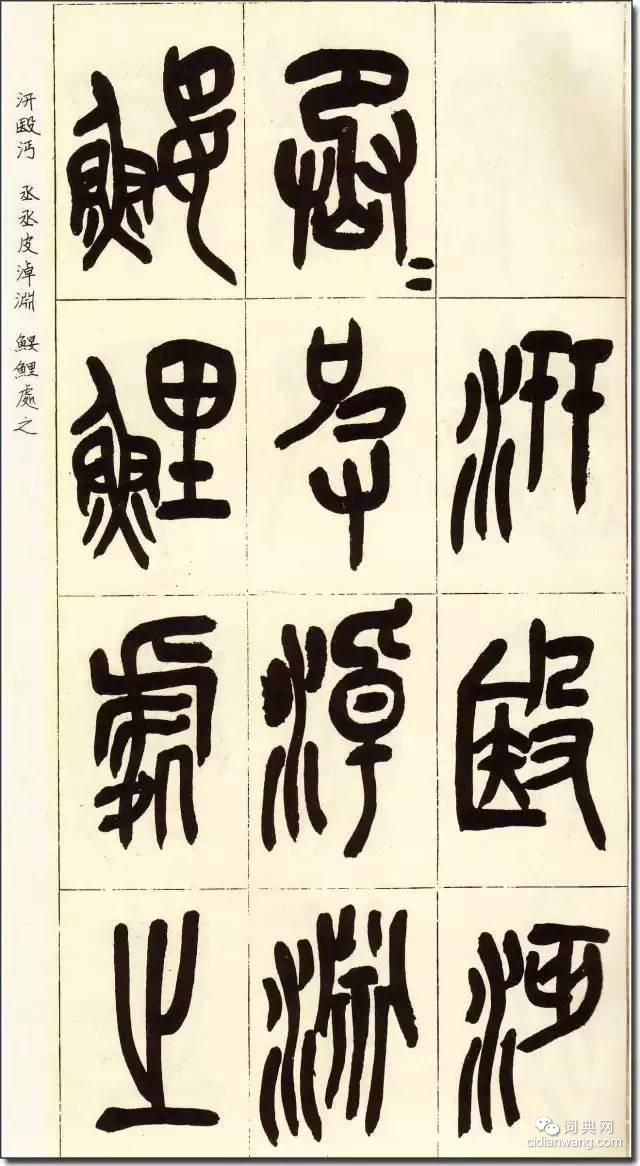 汧殹沔
丞〓皮淖淵
鰋鯉處之
汧殹沔 丞丞皮淖淵 鰋鯉處之
词典网
cidianwang.com